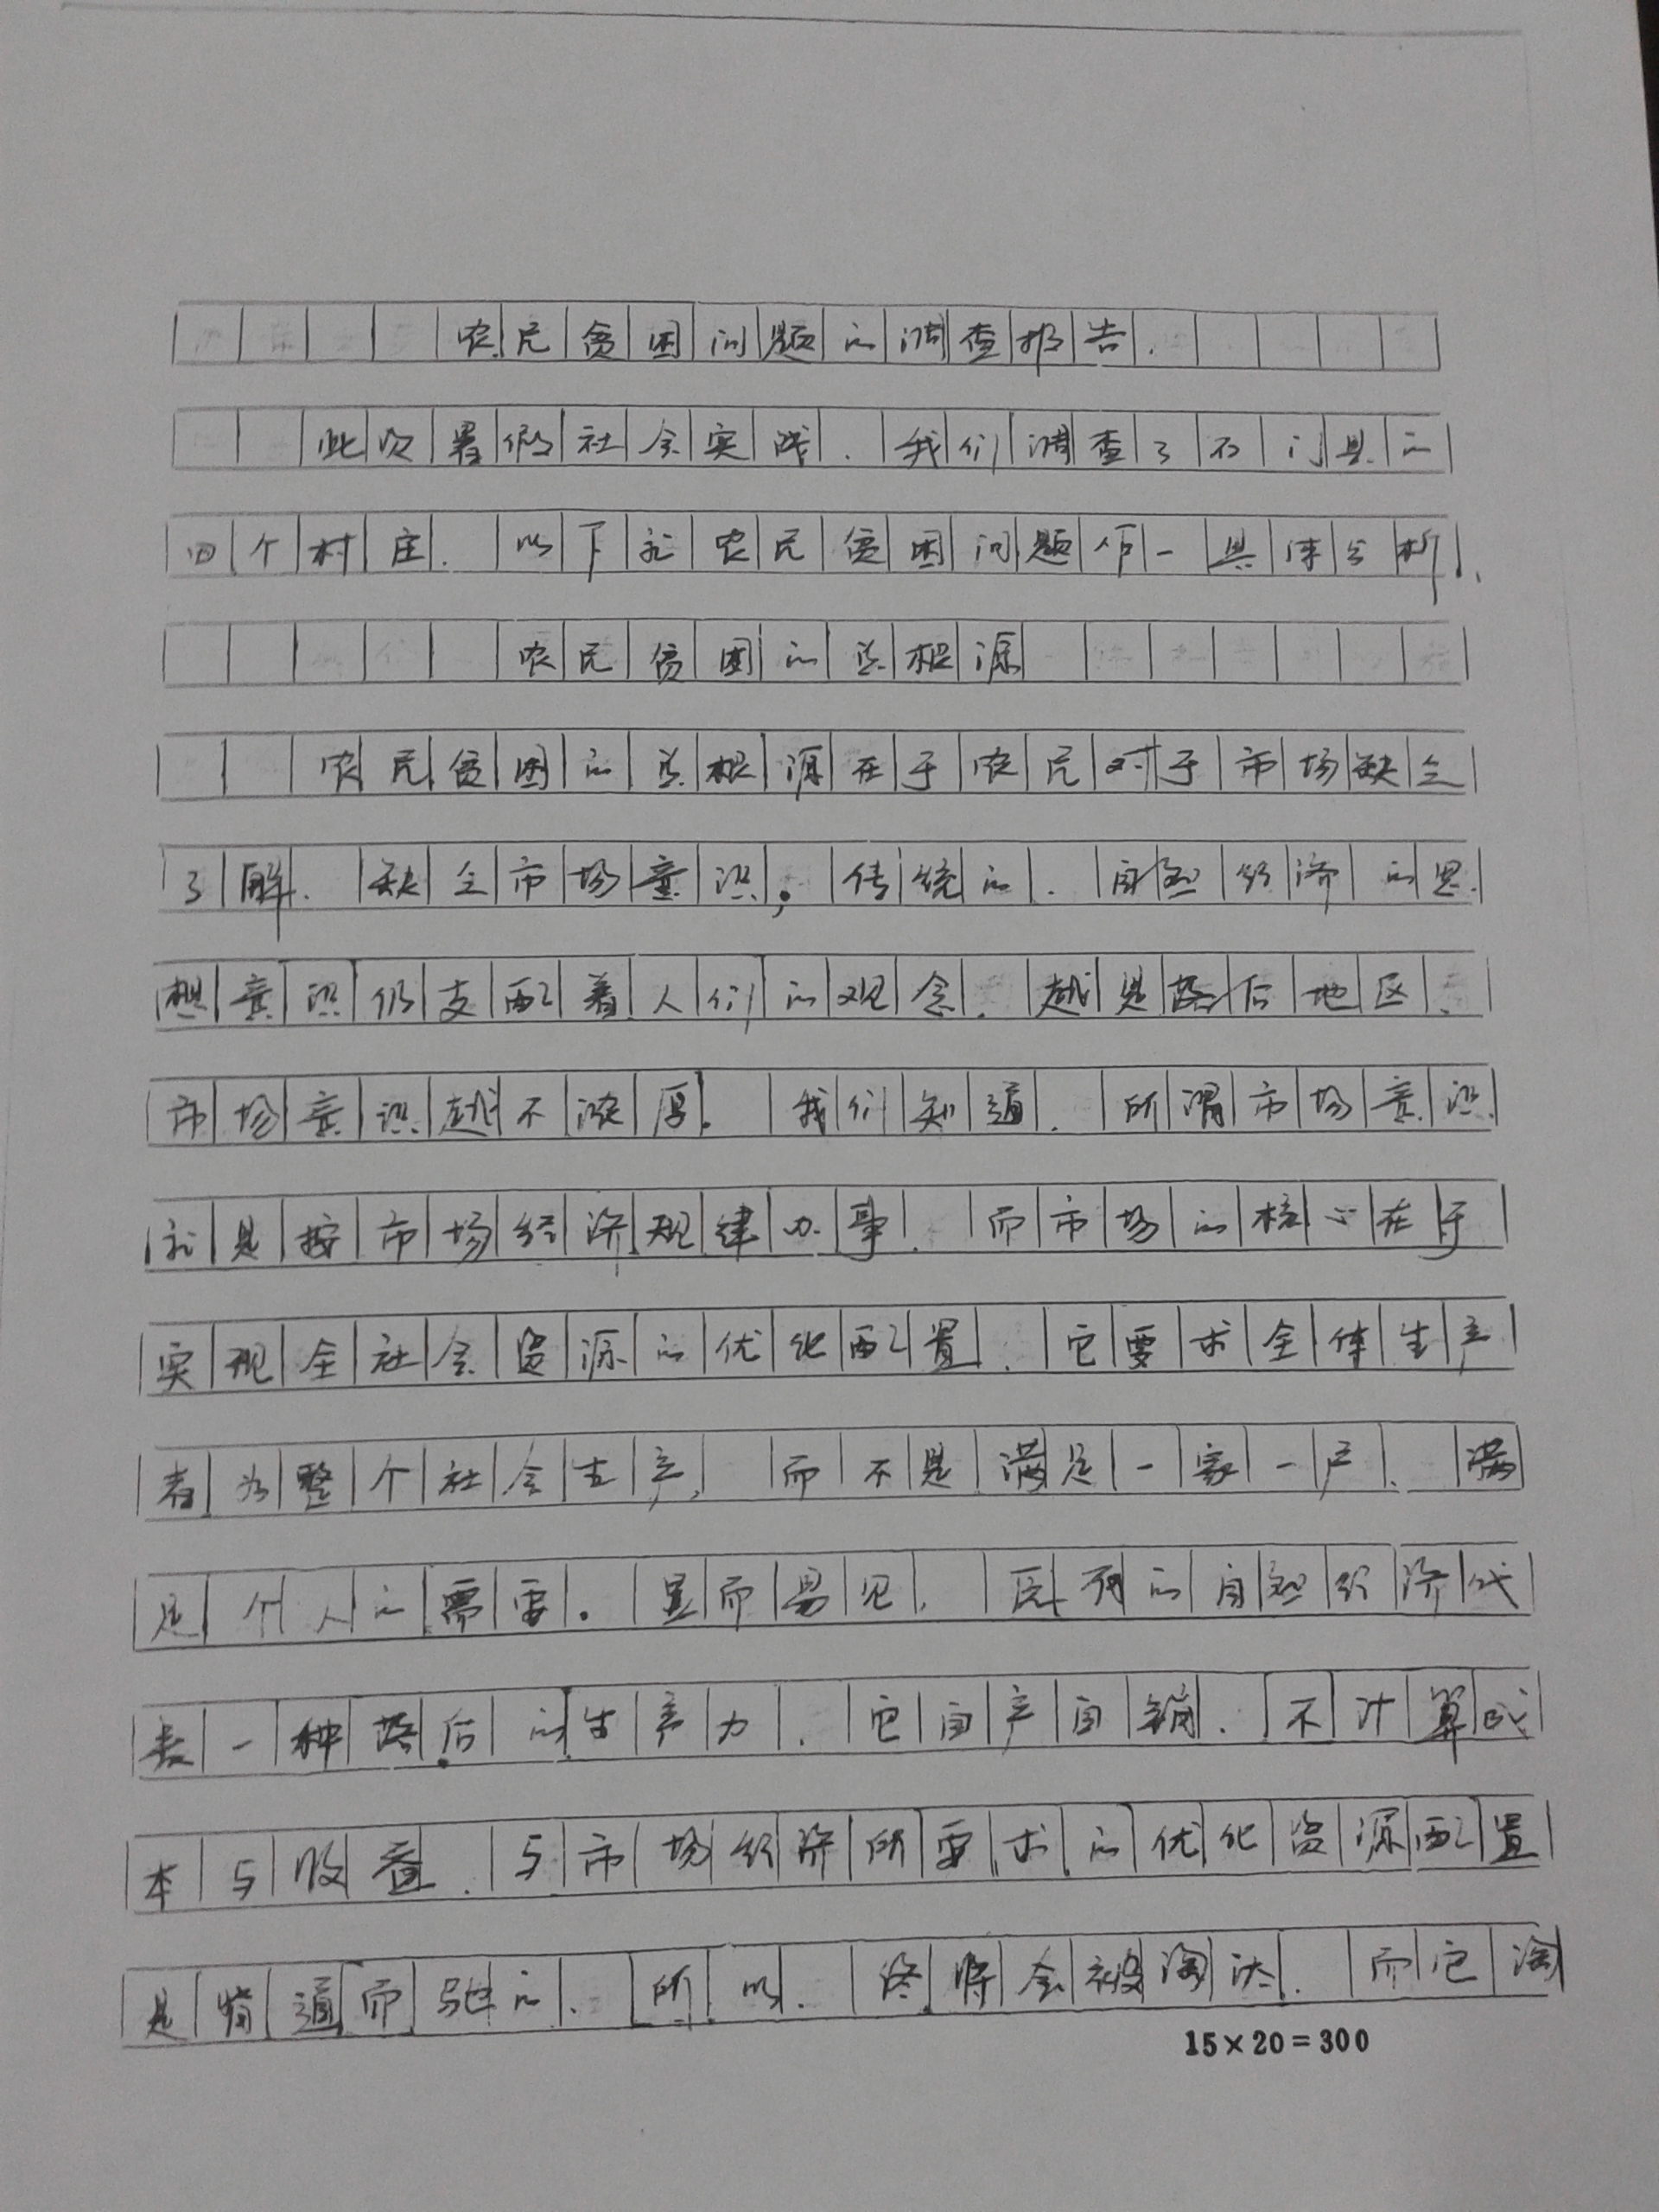 农民贫困问题的调查报告.
此次暑假社会实践.我们调查了石门县的
四个村庄.以下就农民贫困问题作一具体分析.
农民贫困的总根源
农民贫困的总根源在于农民对于市场缺乏
了解.缺乏市场意识,传统的.自然经济的思
想意识仍支配着人们的观念.越是落后地区.
市场意识越不浓厚.我们知道.所谓市场意识
就是按市场经济规律办事.而市场的核心在于
实现全社会资源的优化配置.它要求全体生产
者为整个社会生产,而不是满足一家一户.满
足个人的需要.显而易见.原有的自然经济代
表一种落后的生产力.它自产自销.不计算成
本与收益.与市场经济所要求的优化资源配置
是背道而驰的.所以.终将会被淘汰.而它淘
15×20=300